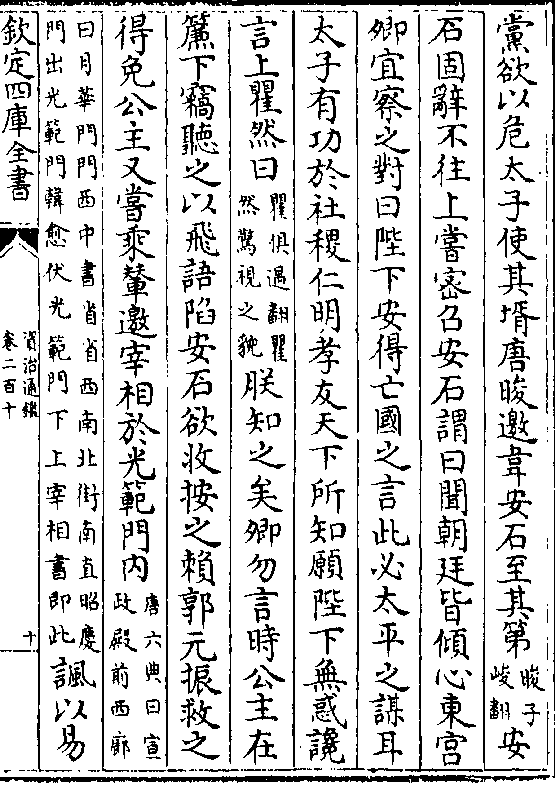 黨欲以危太子使其壻唐晙邀韋安石至其第晙子峻翻安
石固辭不往上嘗密召安石謂曰聞朝廷皆傾心東宫
卿宜察之對曰陛下安得亡國之言此必太平之謀耳
太子有功於社稷仁明孝友天下所知願陛下無惑讒
言上瞿然曰瞿俱遇翻瞿然驚視之貌朕知之矣卿勿言時公主在
簾下竊聽之以飛語陷安石欲收按之賴郭元振救之
得免公主又嘗乘輦邀宰相於光範門内唐六典曰宣政殿前西廊
曰月華門門西中書省省西南北街南直昭慶門出光範門韓愈伏光範門下上宰相書即此諷以易
欽定四庫全書
資治通鑑
卷二百十
十